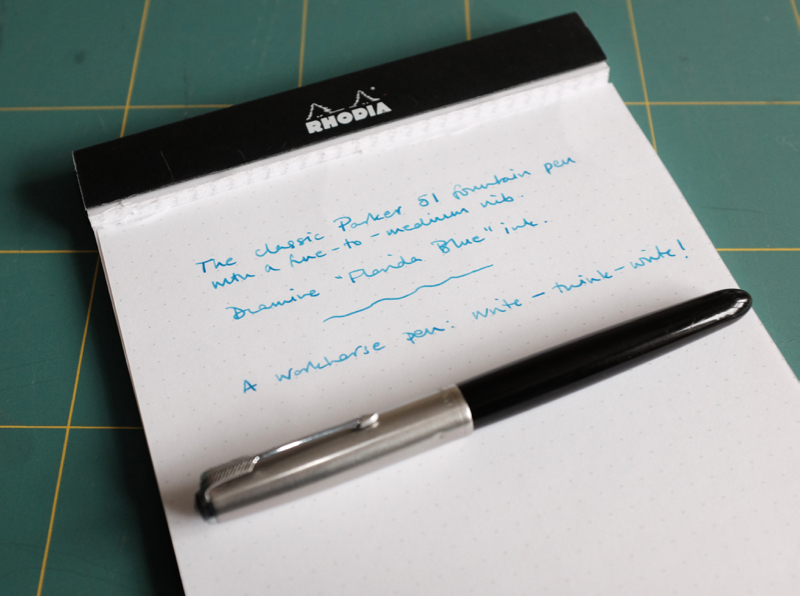 RHODIA
The classic Parker 51 fountain pen
with a fine-to-medium nib.
Diamine "Florida Blue" ink.
A workhorse pen: write - think - write!